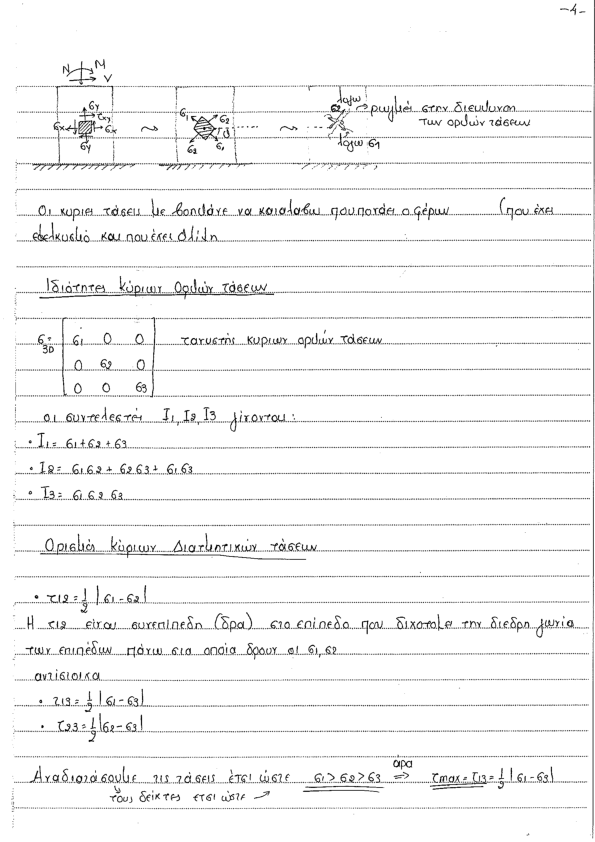 -4-
N M
V
σy
τxy
σx σx
σy
σ1 σ2
σ2 σ1
λόγω
σ2
λόγω σ1
ρωγμές στην διεύθυνση
των ορθών τάσεων
Οι κυριες τάσεις με βοηθάνε να καταλαβω που ποπάει ο φέρων (που έχει
εφελκυσμό και που έχει θλίψη
Ιδιότητες κύριων Ορθών τάσεων
σ= 3D [ σ1 0 0
0 σ2 0
0 0 σ3 ] τανυστής κυριων ορθών τάσεων
οι συντελεστές I1, I2, I3 γίνονται:
• I1= σ1+σ2+σ3
• I2= σ1σ2 + σ2σ3 + σ1σ3
• I3= σ1 σ2 σ3
Ορισμός κύριων Διατμητικών τάσεων
• τ12= 1/2 |σ1-σ2|
Η τ12 είναι συνεπίπεδη (δρα) στο επίπεδο που διχοτομεί την διεδρη γωνία
των επιπέδων πάνω στα οποία δρουν οι σ1, σ2
αντίστοιχα
• τ13= 1/2 |σ1-σ3|
• τ23= 1/2 |σ2-σ3|
άρα
Αναδιατάσουμε τις τάσεις έτσι ώστε σ1>σ2>σ3 ⇒ τmax=τ13=1/2 |σ1-σ3|
τους δείκτες ετσι ώστε →